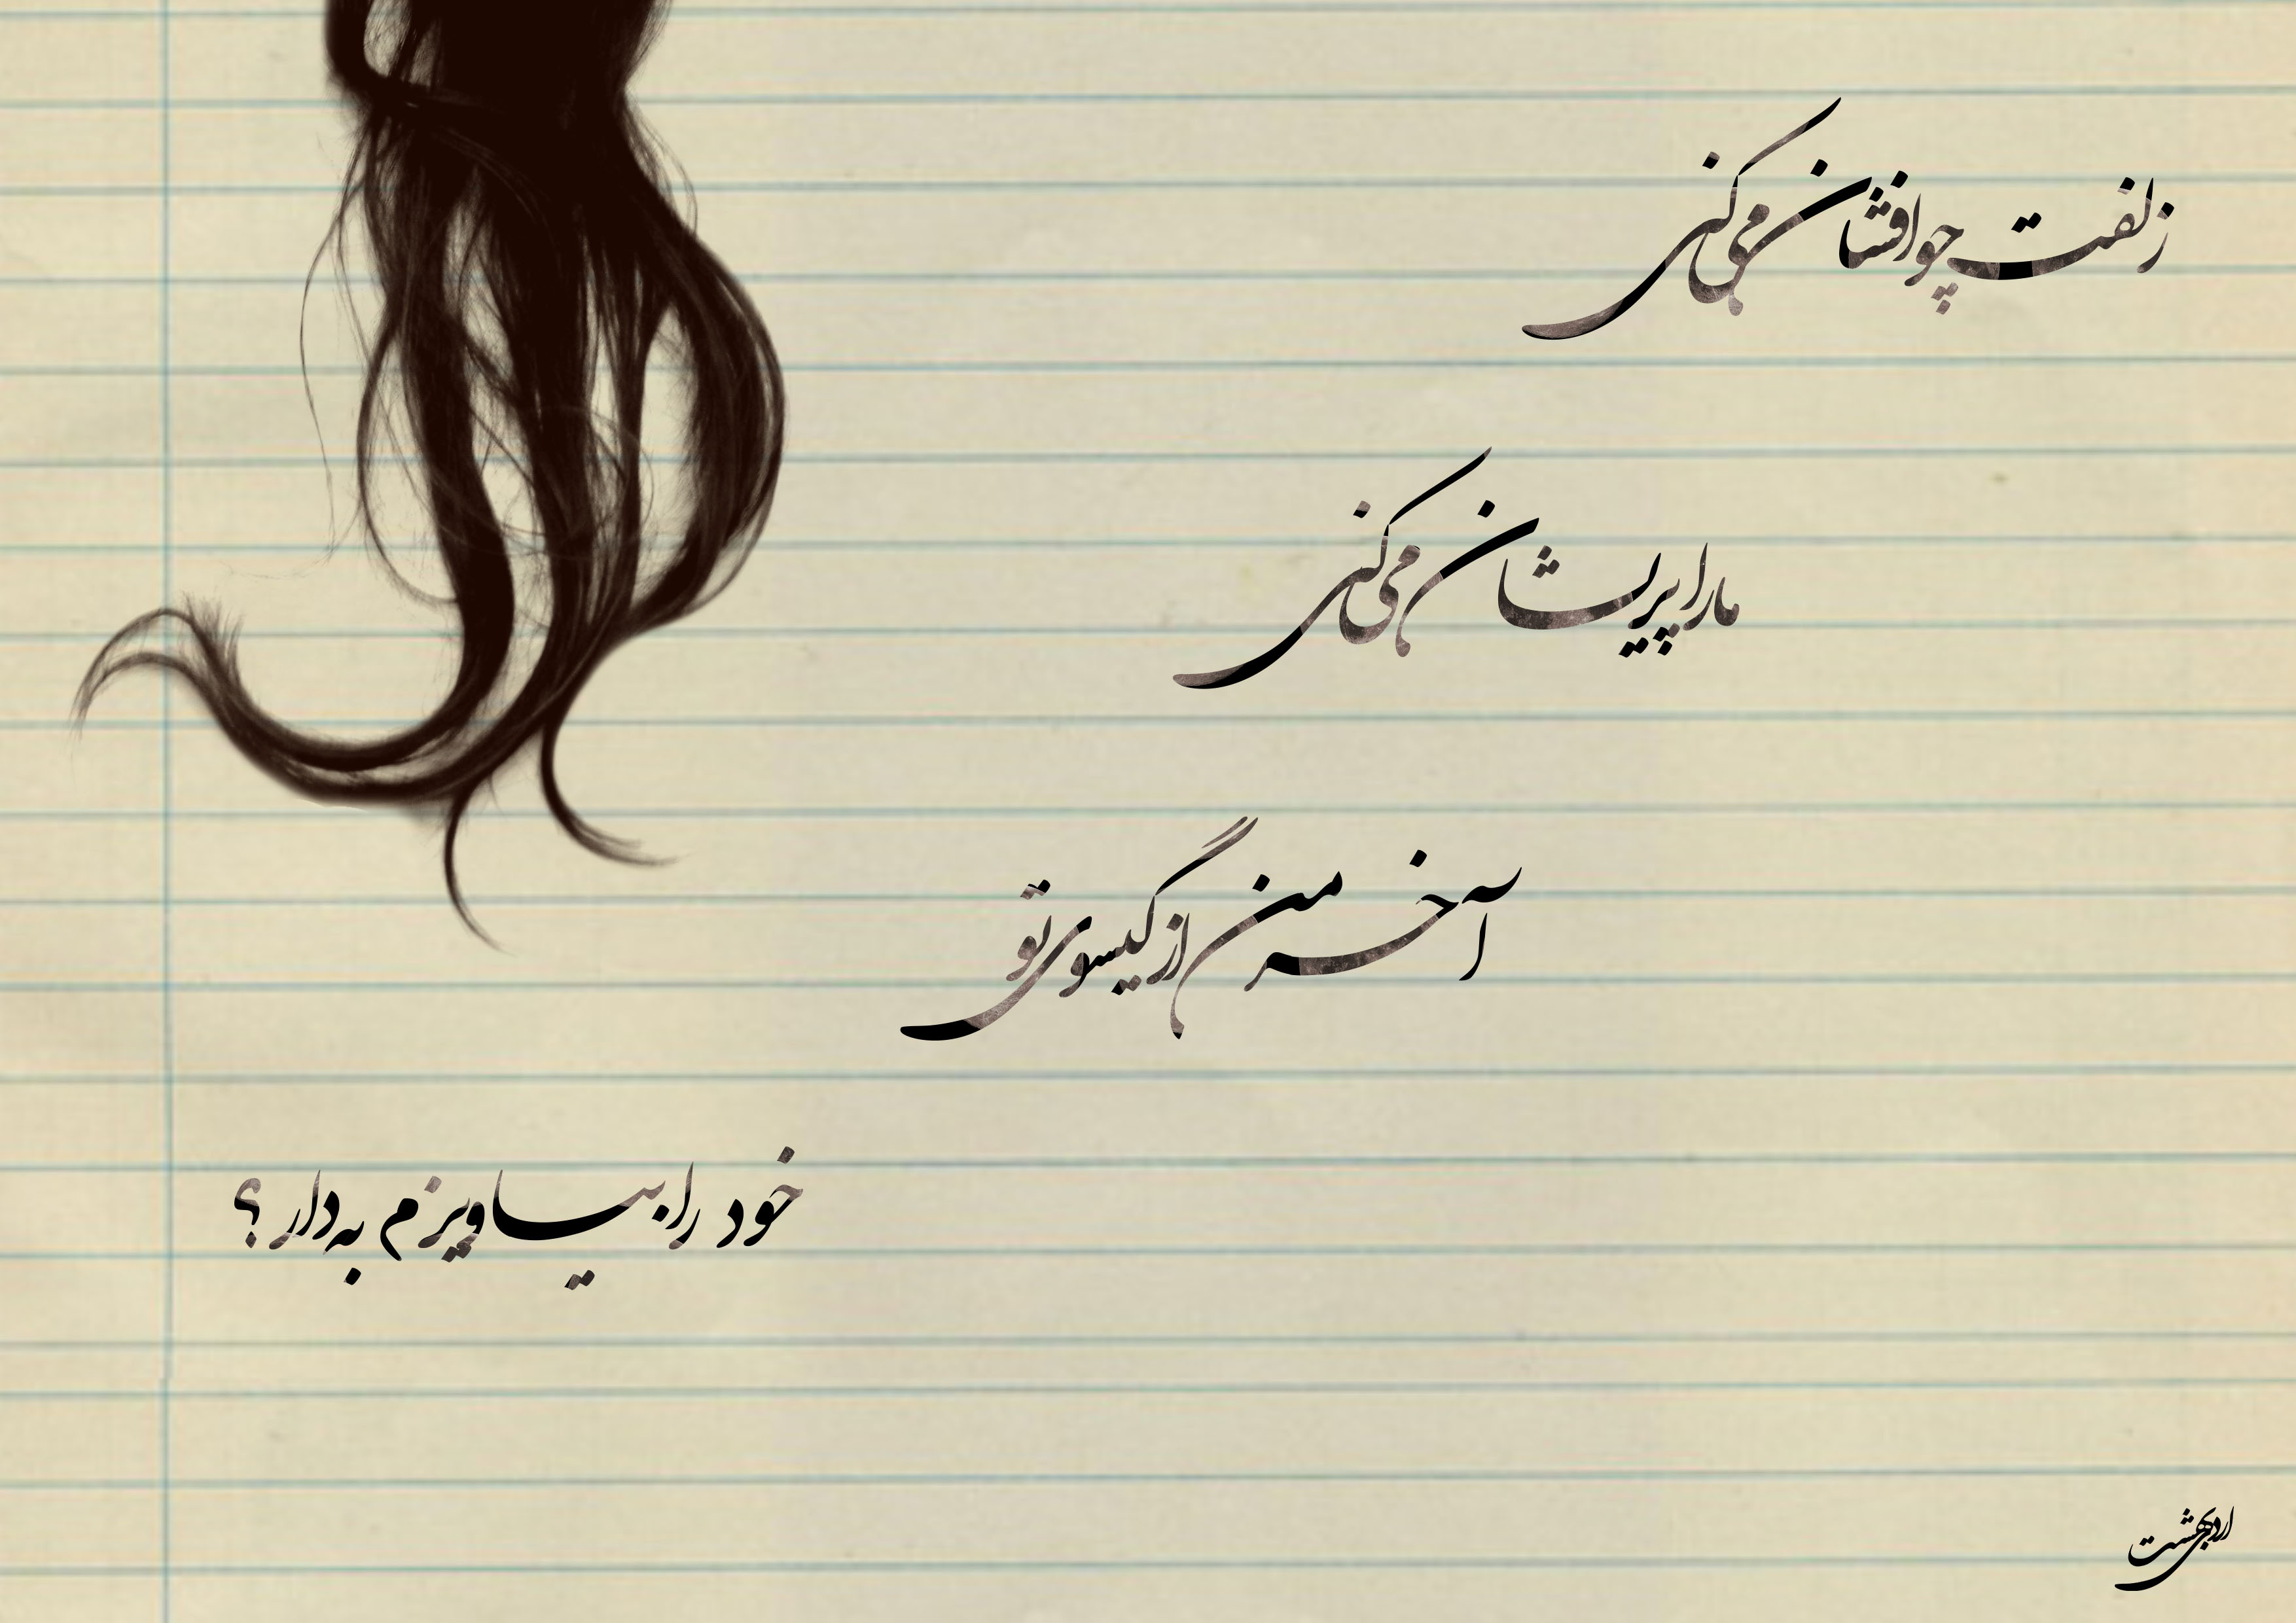 زلفت چو افشان می‌کنی
ما را پریشان می‌کنی
آخر من از گیسوی تو
خود را بیاویزم به دار ؟
اردیبهشت